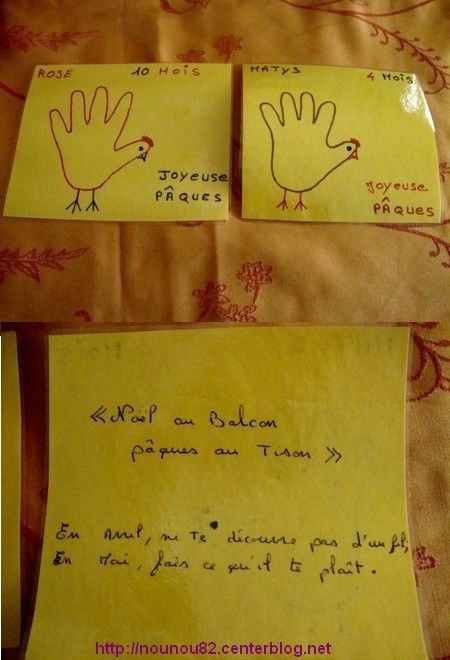 ROSE 10 MOIS
JOYEUSE
PÂQUES
MATYS 4 MOIS
JOYEUSE
PÂQUES
« Noël au Balcon
pâques au Tison »
En Avril, ne te découvre pas d'un fil,
En Mai, fais ce qu'il te plaît.
http://nounou82.centerblog.net